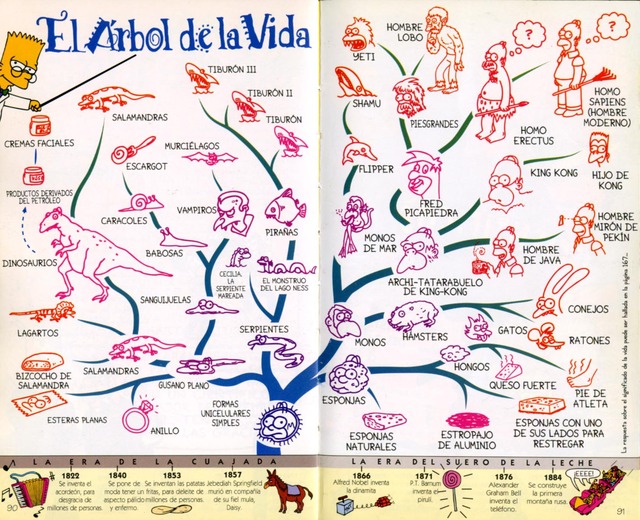 El Árbol de la Vida
TIBURÓN III
TIBURÓN II
TIBURÓN
SALAMANDRAS
CREMAS FACIALES
ESCARGOT
MURCIÉLAGOS
PRODUCTOS DERIVADOS
DEL PETROLEO
CARACOLES
VAMPIROS
PIRAÑAS
DINOSAURIOS
BABOSAS
CECILIA,
LA
SERPIENTE
MAREADA
EL MONSTRUO
DEL LAGO NESS
SANGUIJUELAS
LAGARTOS
SERPIENTES
SALAMANDRAS
BIZCOCHO DE
SALAMANDRA
GUSANO PLANO
ESTERAS PLANAS
ANILLO
FORMAS
UNICELULARES
SIMPLES
YETI
HOMBRE
LOBO
?
?
SHAMU
PIESGRANDES
HOMO
ERECTUS
HOMO
SAPIENS
(HOMBRE
MODERNO)
FLIPPER
FRED
PICAPIEDRA
KING KONG
HIJO DE
KONG
MONOS
DE MAR
HOMBRE
DE JAVA
HOMBRE
MIRÓN DE
PEKÍN
ARCHI-TATARABUELO
DE KING-KONG
CONEJOS
MONOS
HÁMSTERS
GATOS
RATONES
HONGOS
QUESO FUERTE
PIE DE
ATLETA
ESPONJAS
ESPONJAS
NATURALES
ESTROPAJO
DE ALUMINIO
ESPONJAS CON UNO
DE SUS LADOS PARA
RESTREGAR
La respuesta sobre el significado de la vida puede ser hallada en la página 167.
LA ERA DE LA CUAJADA
1822
Se inventa el
acordeón, para
desgracia de
millones de personas.
1840
Se pone de
moda tener un
aspecto pálido
y enfermo.
1853
Se inventan las patatas
fritas, para deleite de
millones de personas.
1857
Jebediah Springfield
murió en compañía
de su fiel mula,
Daisy.
90
LA ERA DEL SUERO DE LA LECHE
1866
Alfred Nobel inventa
la dinamita.
1871
P.T. Barnum
inventa el
pirulí.
1876
Alexander
Graham Bell
inventa el
teléfono.
1884
Se construye
la primera
montaña rusa.
¡EEEE!
91